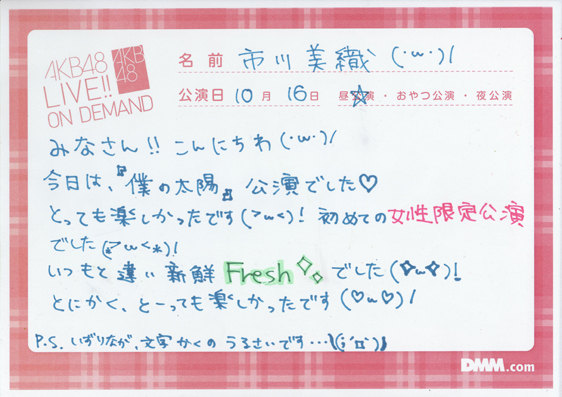 AKB48
LIVE!!
ON DEMAND
AKB
48
名前 市川美織(･ω･)/
公演日 10月 16日 昼☆演・おやつ公演・夜公演
みなさん!! こんにちわ(･ω･)/
今日は、『僕の太陽』公演でした♡
とっても楽しかったです(>ω<)! 初めての女性限定公演
でした(*>ω<*)!
いつもと違い新鮮Fresh✧✧でした(✧ω✧)!
とにかく、とーっても楽しかったです(♡ω♡)/
P.S. いずりなが、文字かくのうるさいです…\(;´Д`)
DMM.com